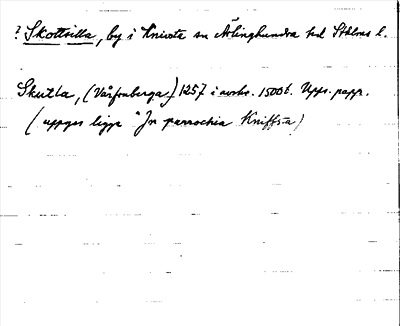 ? Skottsilla, by i Knivsta sn Ärlinghundra hd Sthlms l.
Skutla, (Vårfruberga) 1257 i avskr. 1500 t. Upps. papp.
(uppges ligga "In parrochia Kniffsta)